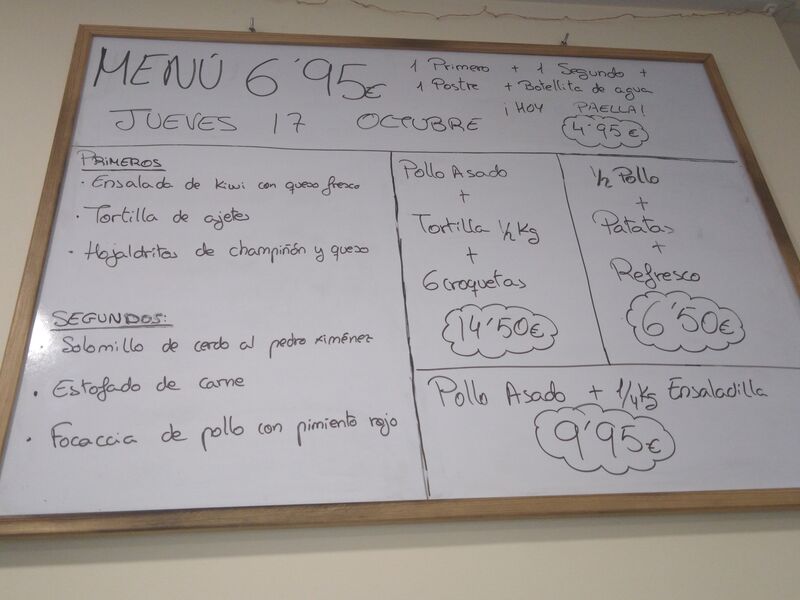 MENÚ 6'95€
1 Primero + 1 Segundo +
1 Postre + Botellita de agua
¡HOY PAELLA!
4'95€
JUEVES 17 OCTUBRE
PRIMEROS
· Ensalada de kiwi con queso fresco
· Tortilla de ajetes
· Hojaldritos de champiñón y queso
SEGUNDOS:
· Solomillo de cerdo al pedro ximénez
· Estofado de carne
· Focaccia de pollo con pimiento rojo
Pollo Asado
+
Tortilla 1/2 Kg
+
6 croquetas
14'50€
1/2 Pollo
+
Patatas
+
Refresco
6'50€
Pollo Asado + 1/4 Kg Ensaladilla
9'95€